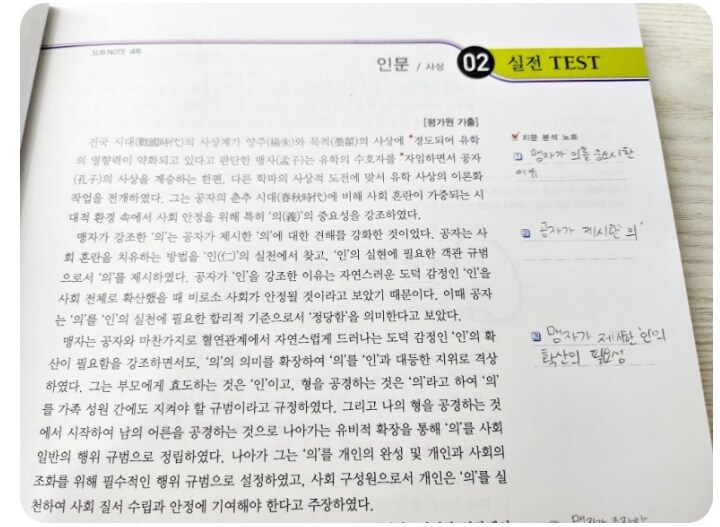 SUB NOTE
인문 / 사상 02 실전 TEST
[평가원 기출]
전국 시대(戰國時代)의 사상계가 양주(楊朱)와 묵적(墨翟)의 사상에 *경도되어 유학
의 영향력이 약화되고 있다고 판단한 맹자(孟子)는 유학의 수호자를 *자임하면서 공자
(孔子)의 사상을 계승하는 한편, 다른 학파의 사상적 도전에 맞서 유학 사상의 이론화
작업을 전개하였다. 그는 공자의 춘추 시대(春秋時代)에 비해 사회 혼란이 가중되는 시
대적 환경 속에서 사회 안정을 위해 특히 '의(義)'의 중요성을 강조하였다.
맹자가 강조한 '의'는 공자가 제시한 '의'에 대한 견해를 강화한 것이었다. 공자는 사
회 혼란을 치유하는 방법을 '인(仁)'의 실천에서 찾고, '인'의 실현에 필요한 객관 규범
으로서 '의'를 제시하였다. 공자가 '인'을 강조한 이유는 자연스러운 도덕 감정인 '인'을
사회 전체로 확산했을 때 비로소 사회가 안정될 것이라고 보았기 때문이다. 이때 공자
는 '의'를 '인'의 실천에 필요한 합리적 기준으로서 '정당함'을 의미한다고 보았다.
맹자는 공자와 마찬가지로 혈연관계에서 자연스럽게 드러나는 도덕 감정인 '인'의 확
산이 필요함을 강조하면서도, '의'의 의미를 확장하여 '의'를 '인'과 대등한 지위로 격상
하였다. 그는 부모에게 효도하는 것은 '인'이고, 형을 공경하는 것은 '의'라고 하여 '의'
를 가족 성원 간에도 지켜야 할 규범이라고 규정하였다. 그리고 나의 형을 공경하는 것
에서 시작하여 남의 어른을 공경하는 것으로 나아가는 유비적 확장을 통해 '의'를 사회
일반의 행위 규범으로 정립하였다. 나아가 그는 '의'를 개인의 완성 및 개인과 사회의
조화를 위해 필수적인 행위 규범으로 설정하였고, 사회 구성원으로서 개인은 '의'를 실
천하여 사회 질서 수립과 안정에 기여해야 한다고 주장하였다.
지문 분석 노트
1 맹자가 의를 중요시한
이유
2 공자가 제시한 '의'
3 맹자가 제시한 '인'의
확산의 필요성